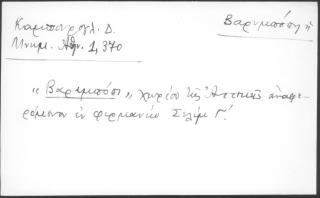 Καμπούρογλ. Δ.
Μνημ. Ἀθην. 1, 370
Βαρυμπόπη
"Βαρυμπόπι" χωρίον τῆς Ἀττικῆς ἀναφε-
ρόμενον ἐν φιρμανίῳ Σελὶμ Γ'.